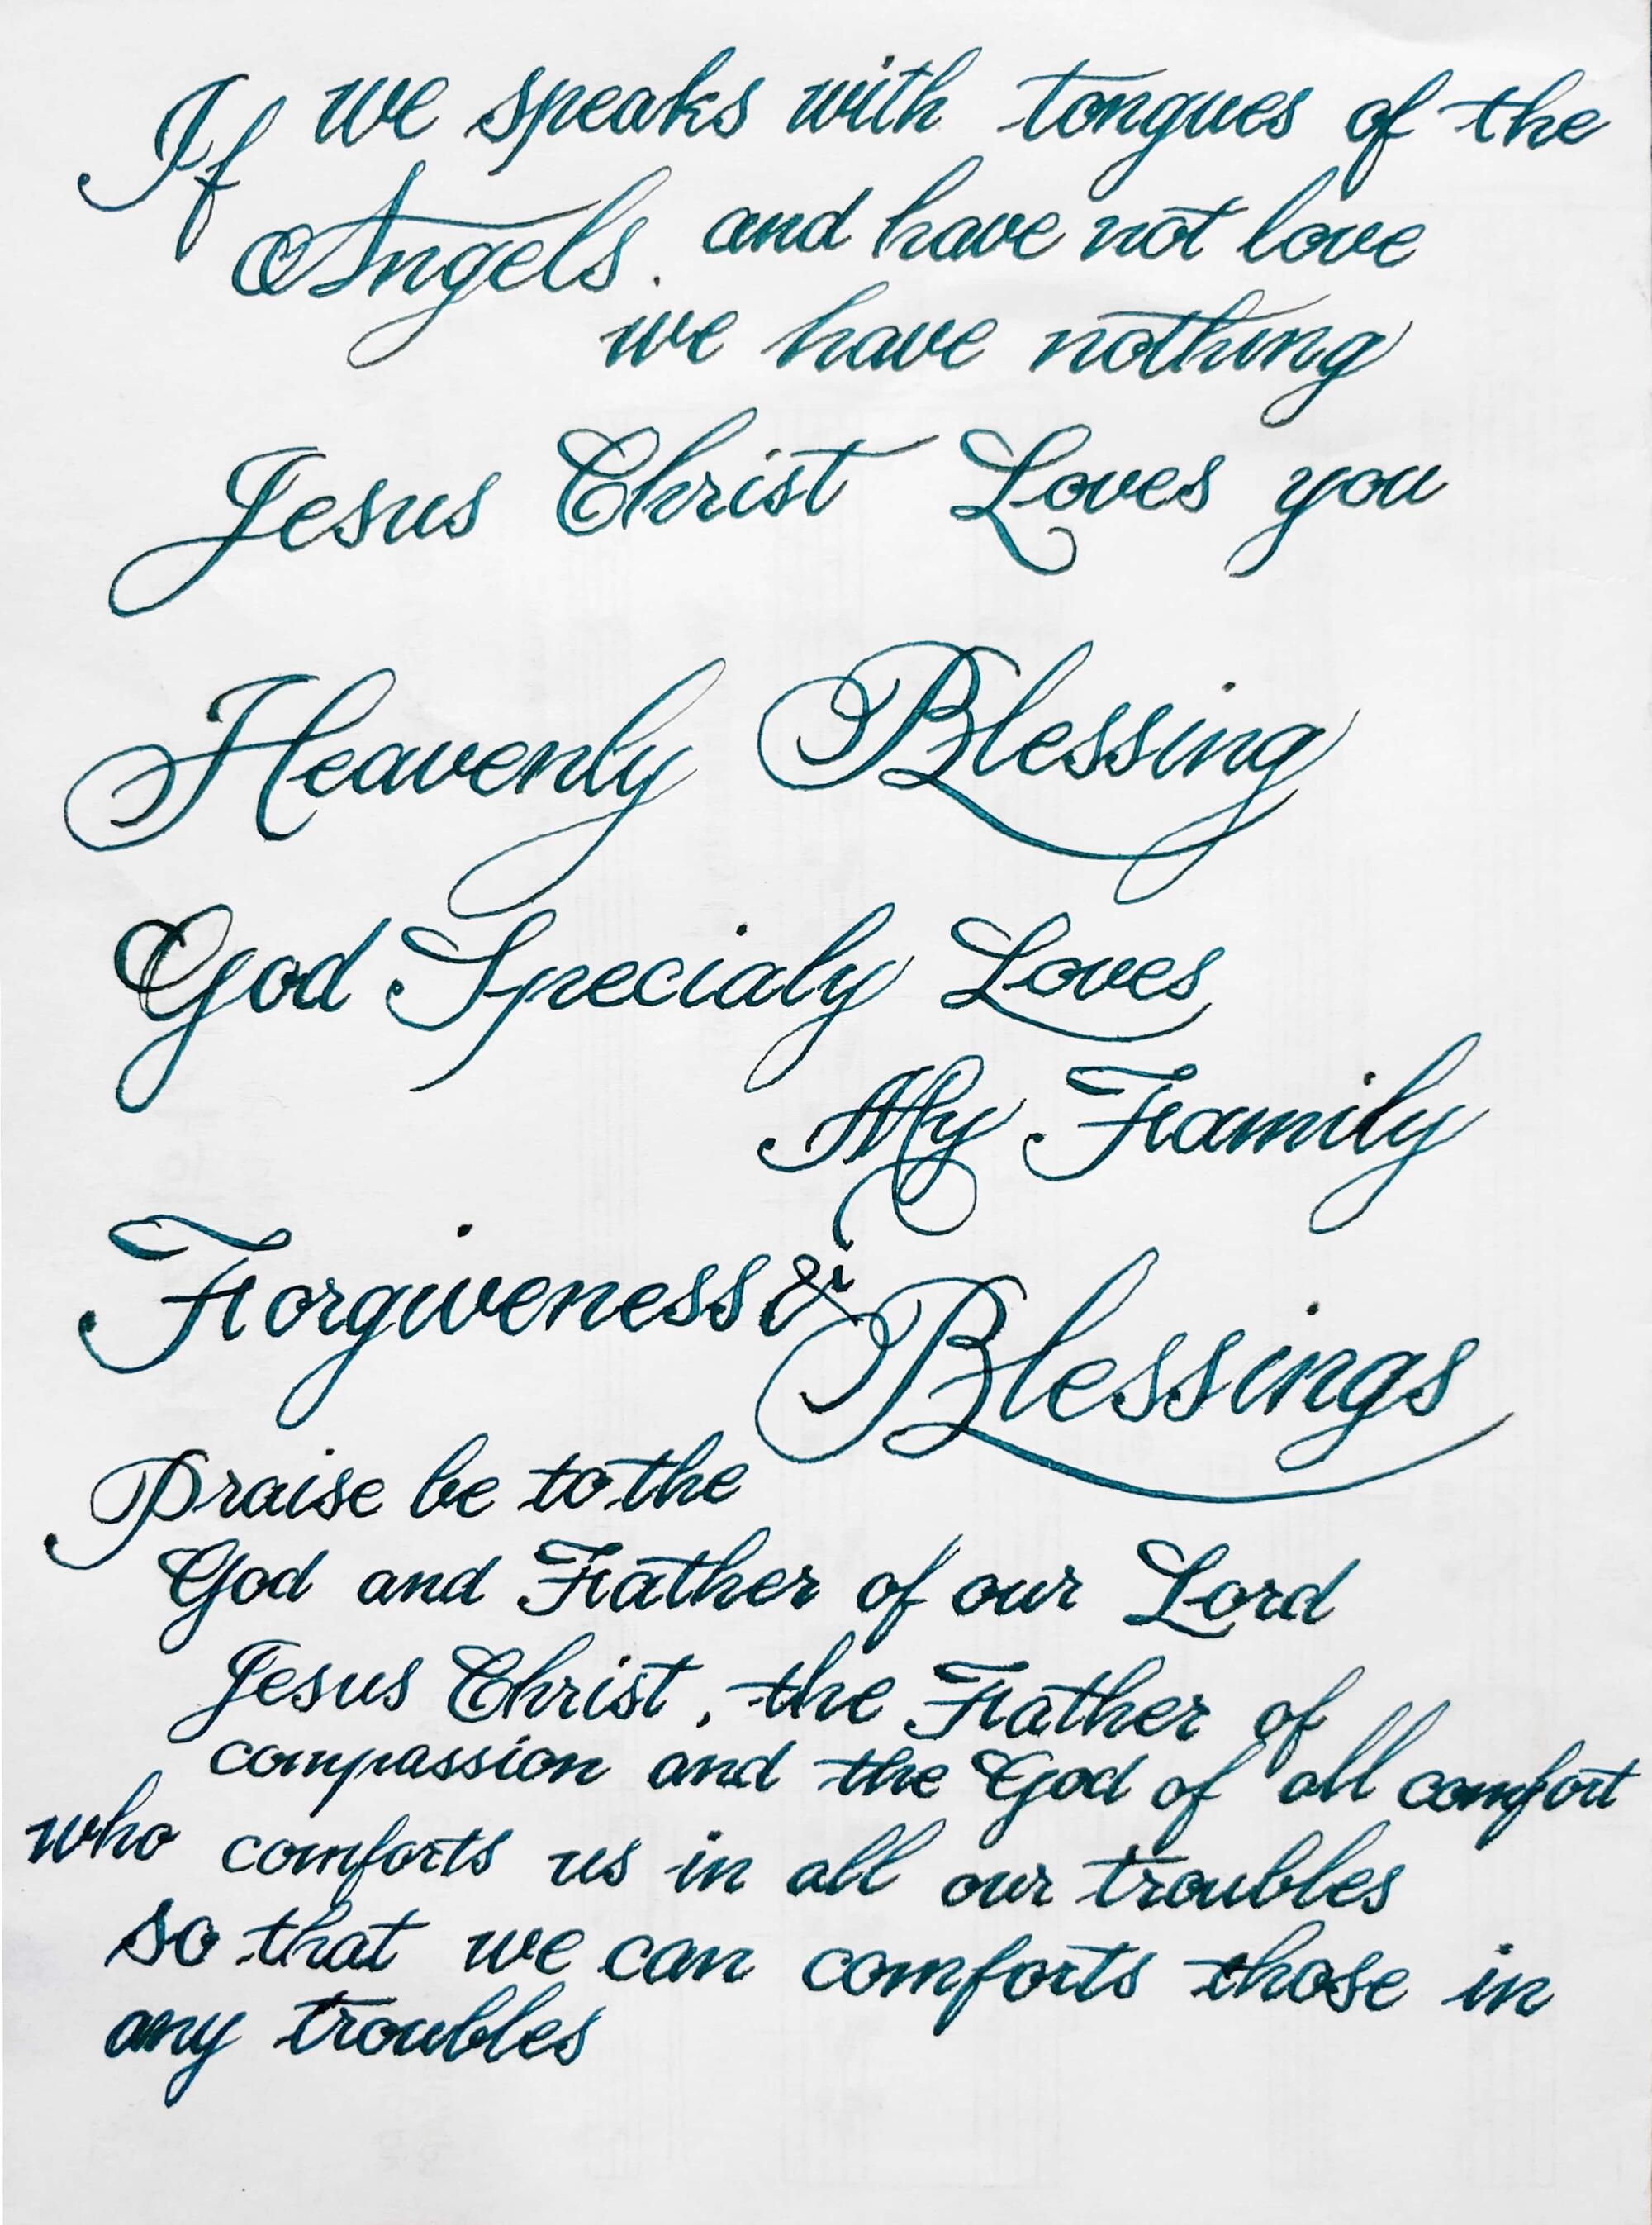 If we speaks with tongues of the
Angels. and have not love
we have nothing
Jesus Christ Loves you
Heavenly Blessing
God Specialy Loves
My Family
Forgiveness &
Blessings
Praise be to the
God and Father of our Lord
Jesus Christ, the Father of
compassion and the God of all comfort
who comforts us in all our troubles
so that we can comforts those in
any troubles